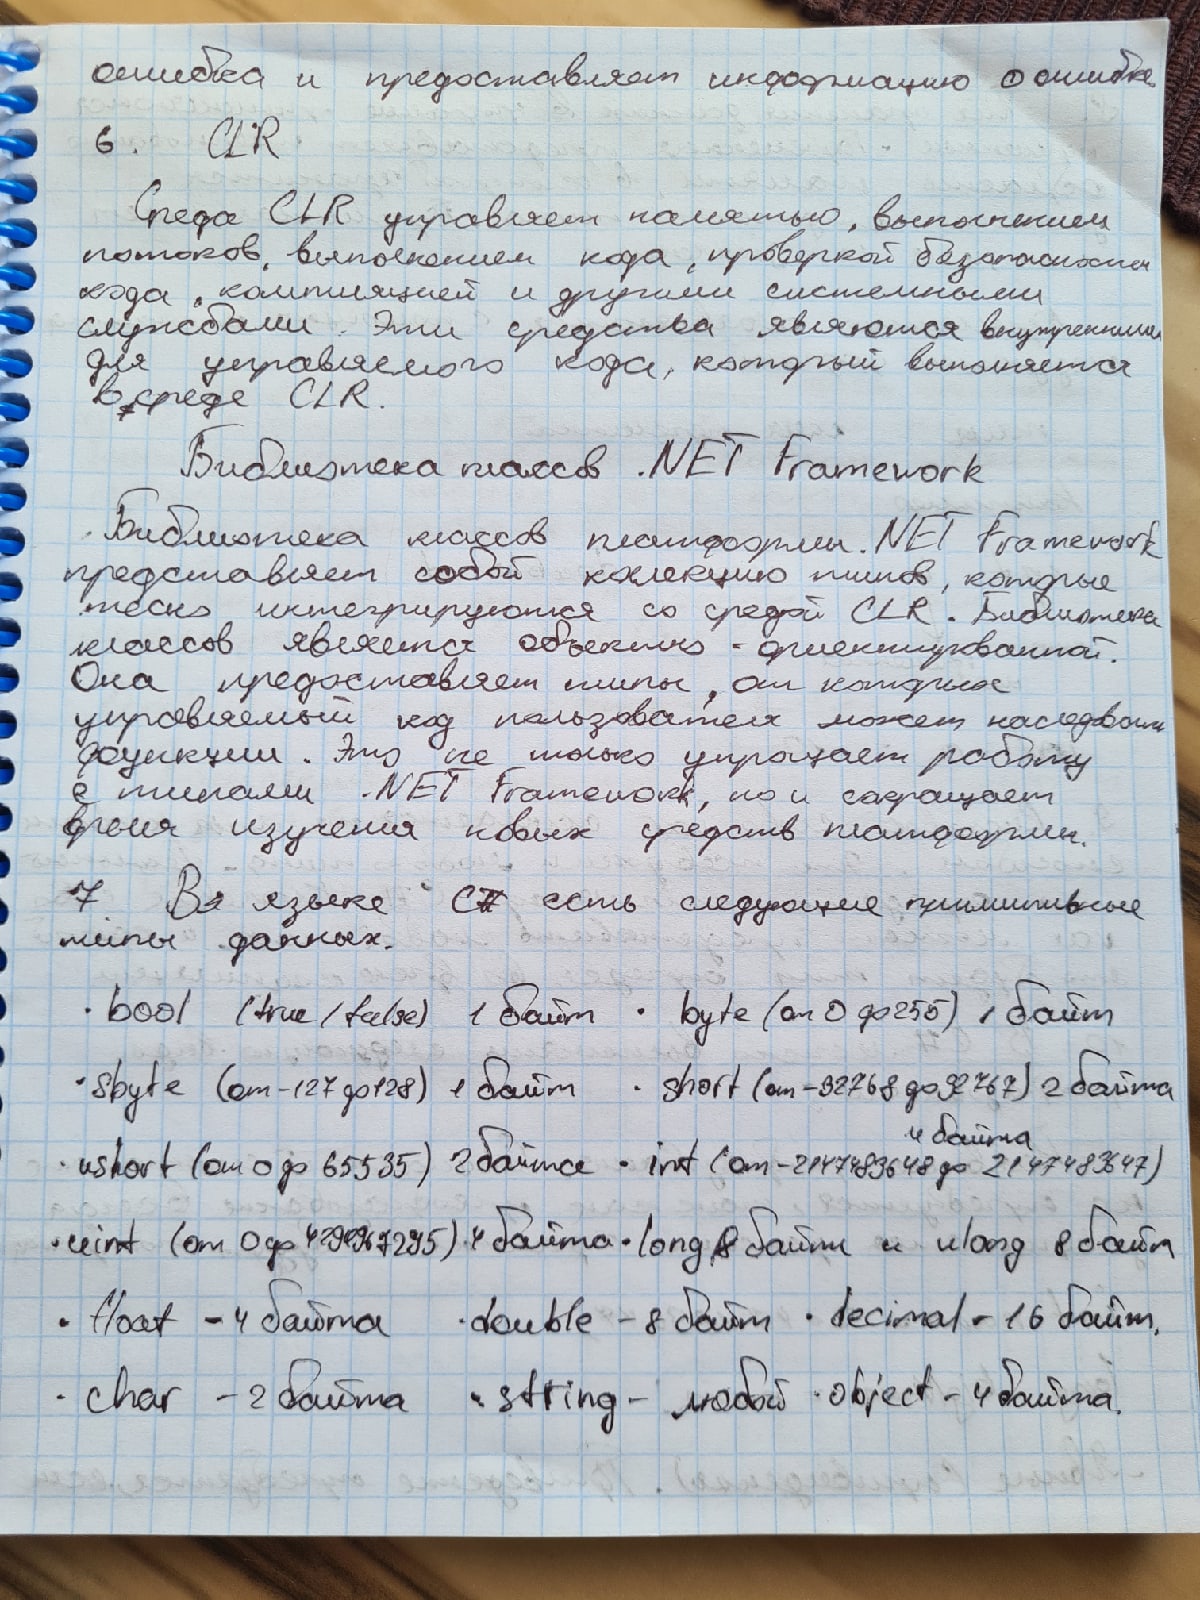 ошибка и предоставляет информацию о ошибке
6. CLR
Среда CLR управляет памятью, выполнением
потоков, выполнением кода, проверкой безопасности
кода, компиляцией и другими системными
службами. Эти средства являются внутренними
для управляемого кода, который выполняется
в среде CLR.
Библиотека классов .NET Framework
Библиотека классов платформы .NET Framework
представляет собой коллекцию типов, которые
тесно интегрируются со средой CLR. Библиотека
классов является объектно-ориентированной.
Она предоставляет типы, от которых
управляемый код пользователя может наследовать
функции. Это не только упрощает работу
с типами .NET Framework, но и сокращает
время изучения новых средств платформы.
7 В языке C# есть следующие примитивные
типы данных.
· bool (true/false) 1 байт · byte (от 0 до 255) 1 байт
· sbyte (от -127 до 128) 1 байт · short (от -32768 до 32767) 2 байта
4 байта
· ushort (от 0 до 65535) 2 байта · int (от -2147483648 до 2147483647)
· uint (от 0 до 4294967295) 4 байта · long 8 байт и ulong 8 байт
· float - 4 байта · double - 8 байт · decimal - 16 байт.
· char - 2 байта · string - любой · object - 4 байта.